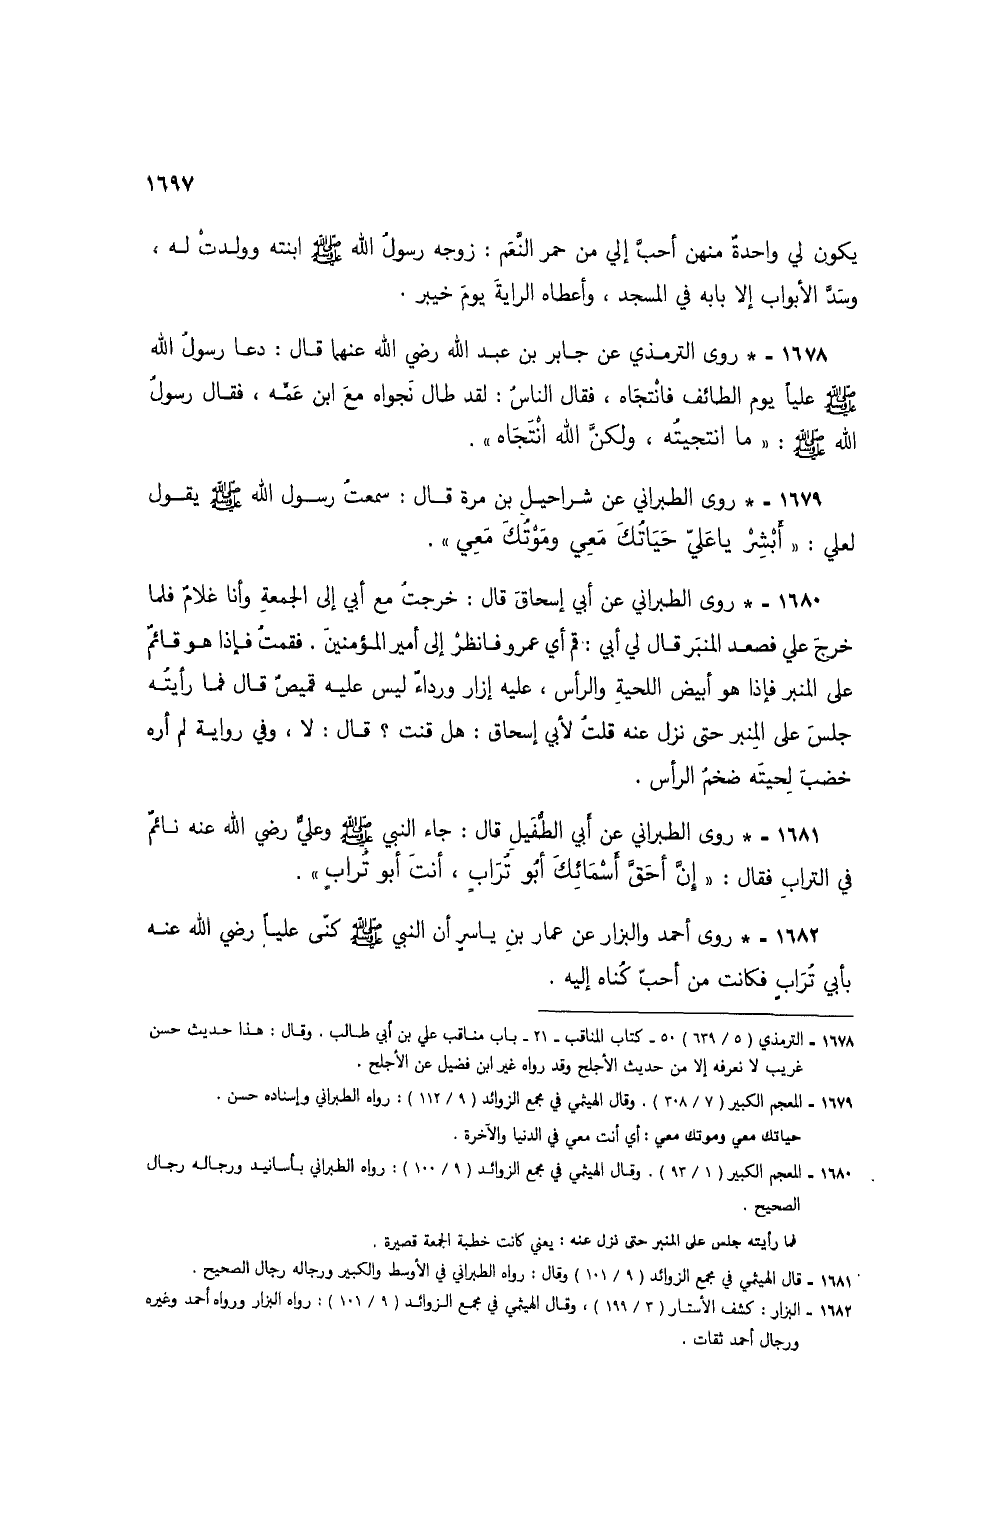 ١٦٩٧
يكون لي واحدةٌ منهن أحبَّ إلي من حمر النَّعَم : زوجه رسولُ الله ﷺ ابنته وولدتْ له ،
وسَدَّ الأبواب إلا بابه في المسجد ، وأعطاه الرايةَ يومَ خيبر .
١٦٧٨ - * روى الترمذي عن جابر بن عبد الله رضي الله عنهما قال : دعا رسولُ الله
ﷺ علياً يوم الطائف فانْتجَاه ، فقال الناسُ : لقد طال نَجواه معَ ابن عَمِّه ، فقال رسولُ
الله ﷺ : « ما انتجيتُه ، ولكنَّ الله انْتَجَاه » .
١٦٧٩ - * روى الطبراني عن شراحيلِ بن مرة قال : سمعتُ رسول الله ﷺ يقول
لعلي : « أَبْشِرْ ياعَليّ حَيَاتُكَ مَعِي ومَوْتُكَ مَعِي » .
١٦٨٠ - * روى الطبراني عن أبي إسحاقَ قال : خرجتُ مع أبي إلى الجمعةِ وأنا غلامٌ فلما
خرجَ علي فصعد المنبَر قال لي أبي : قم أي عمرو فانظرْ إلى أمير المؤمنينَ . فقمتُ فإذا هو قائمٌ
على المنبر فإذا هو أبيض اللحيةِ والرأس ، عليه إزار ورداءٌ ليس عليه قميصٌ قال فما رأيتُه
جلسَ على المِنبر حتى نزل عنه قلتُ لأبي إسحاق : هل قنت ؟ قال : لا ، وفي رواية لم أره
خضبَ لِحيتَه ضخمُ الرأس .
١٦٨١ - * روى الطبراني عن أبي الطُّفَيلِ قال : جاء النبي ﷺ وعليٌّ رضي الله عنه نائمٌ
في الترابِ فقال : « إِنَّ أحَقَّ أَسْمَائِكَ أبُو تُرَابٍ ، أنتَ أبو تُرابٍ » .
١٦٨٢ - * روى أحمد والبزار عن عمار بنِ ياسرٍ أن النبي ﷺ كنّى علياً رضي الله عنه
بأبي تُرَابٍ فكانت من أحبّ كُناه إليه .
١٦٧٨ - الترمذي ( ٥ / ٦٣٩ ) ٥٠ - كتاب المناقب - ٢١ - باب مناقب علي بن أبي طالب . وقال : هذا حديث حسن
غريب لا نعرفه إلا من حديث الأجلح وقد رواه غير ابن فضيل عن الأجلح .
١٦٧٩ - المعجم الكبير ( ٧ / ٣٠٨ ) . وقال الهيثمي في مجمع الزوائد ( ٩ / ١١٢ ) : رواه الطبراني وإسناده حسن .
حياتك معي وموتك معي : أي أنت معي في الدنيا والآخرة .
١٦٨٠ - المعجم الكبير ( ١ / ٩٣ ) . وقال الهيثمي في مجمع الزوائد ( ٩ / ١٠٠ ) : رواه الطبراني بأسانيد ورجاله رجال
الصحيح .
فما رأيته جلس على المنبر حتى نزل عنه : يعني كانت خطبة الجمعة قصيرة .
١٦٨١ - قال الهيثمي في مجمع الزوائد ( ٩ / ١٠١ ) وقال : رواه الطبراني في الأوسط والكبير ورجاله رجال الصحيح .
١٦٨٢ - البزار : كشف الأستار ( ٣ / ١٩٩ ) ، وقال الهيثمي في مجمع الزوائد ( ٩ / ١٠١ ) : رواه البزار ورواه أحمد وغيره
ورجال أحمد ثقات .